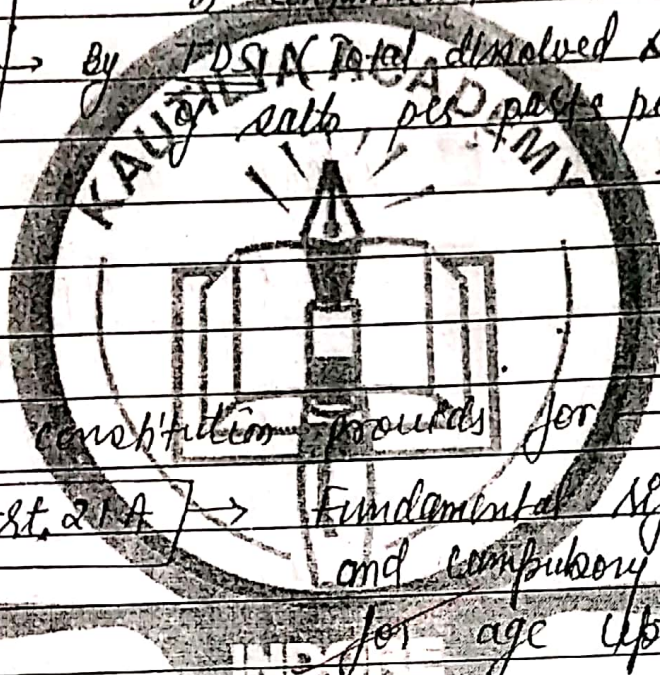 → By TDS (Total dissolved
of salts per parts
KAUTILYA ACADAMY
constitution provids for
Art. 21A → Fundamental
and compulsory
for age upto
INDORE